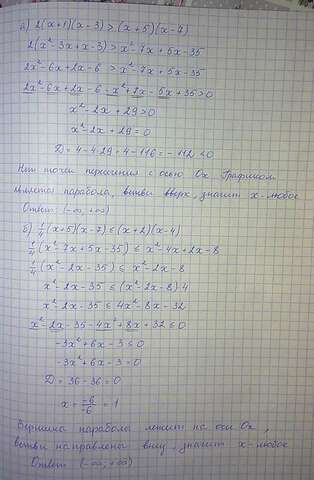 а) 2(x+1)(x-3) > (x+5)(x-7)
2(x²-3x+x-3) > x²-7x+5x-35
2x²-6x+2x-6 > x²-7x+5x-35
2x²-6x+2x-6-x²+7x-5x+35>0
x²-2x+29>0
x²-2x+29=0
D = 4-4·29=4-116=-112<0
Нет точки пересечения с осью Ox. Графиком
является парабола, ветви вверх, значит x-любое
Ответ: (-∞;+∞)
б) 1/4(x+5)(x-7) ≤ (x+2)(x-4)
1/4(x²-7x+5x-35) ≤ x²-4x+2x-8
1/4(x²-2x-35) ≤ x²-2x-8
x²-2x-35 ≤ (x²-2x-8)4
x²-2x-35 ≤ 4x²-8x-32
x²-2x-35-4x²+8x+32 ≤ 0
-3x²+6x-3 ≤ 0
-3x²+6x-3=0
D = 36-36=0
x = -6/-6 = 1
Вершина параболы лежит на оси Ox,
ветви направлены вниз, значит x-любое
Ответ (-∞;+∞)